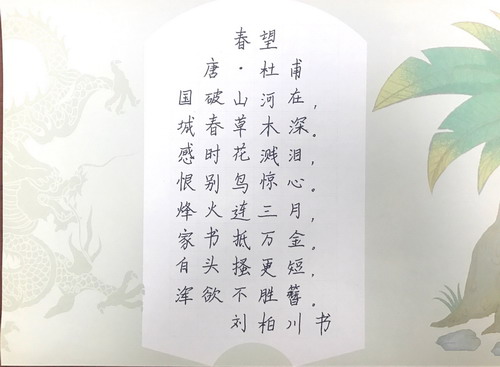 春望
唐·杜甫
国破山河在，
城春草木深。
感时花溅泪，
恨别鸟惊心。
烽火连三月，
家书抵万金。
白头搔更短，
浑欲不胜簪。
刘柏川书